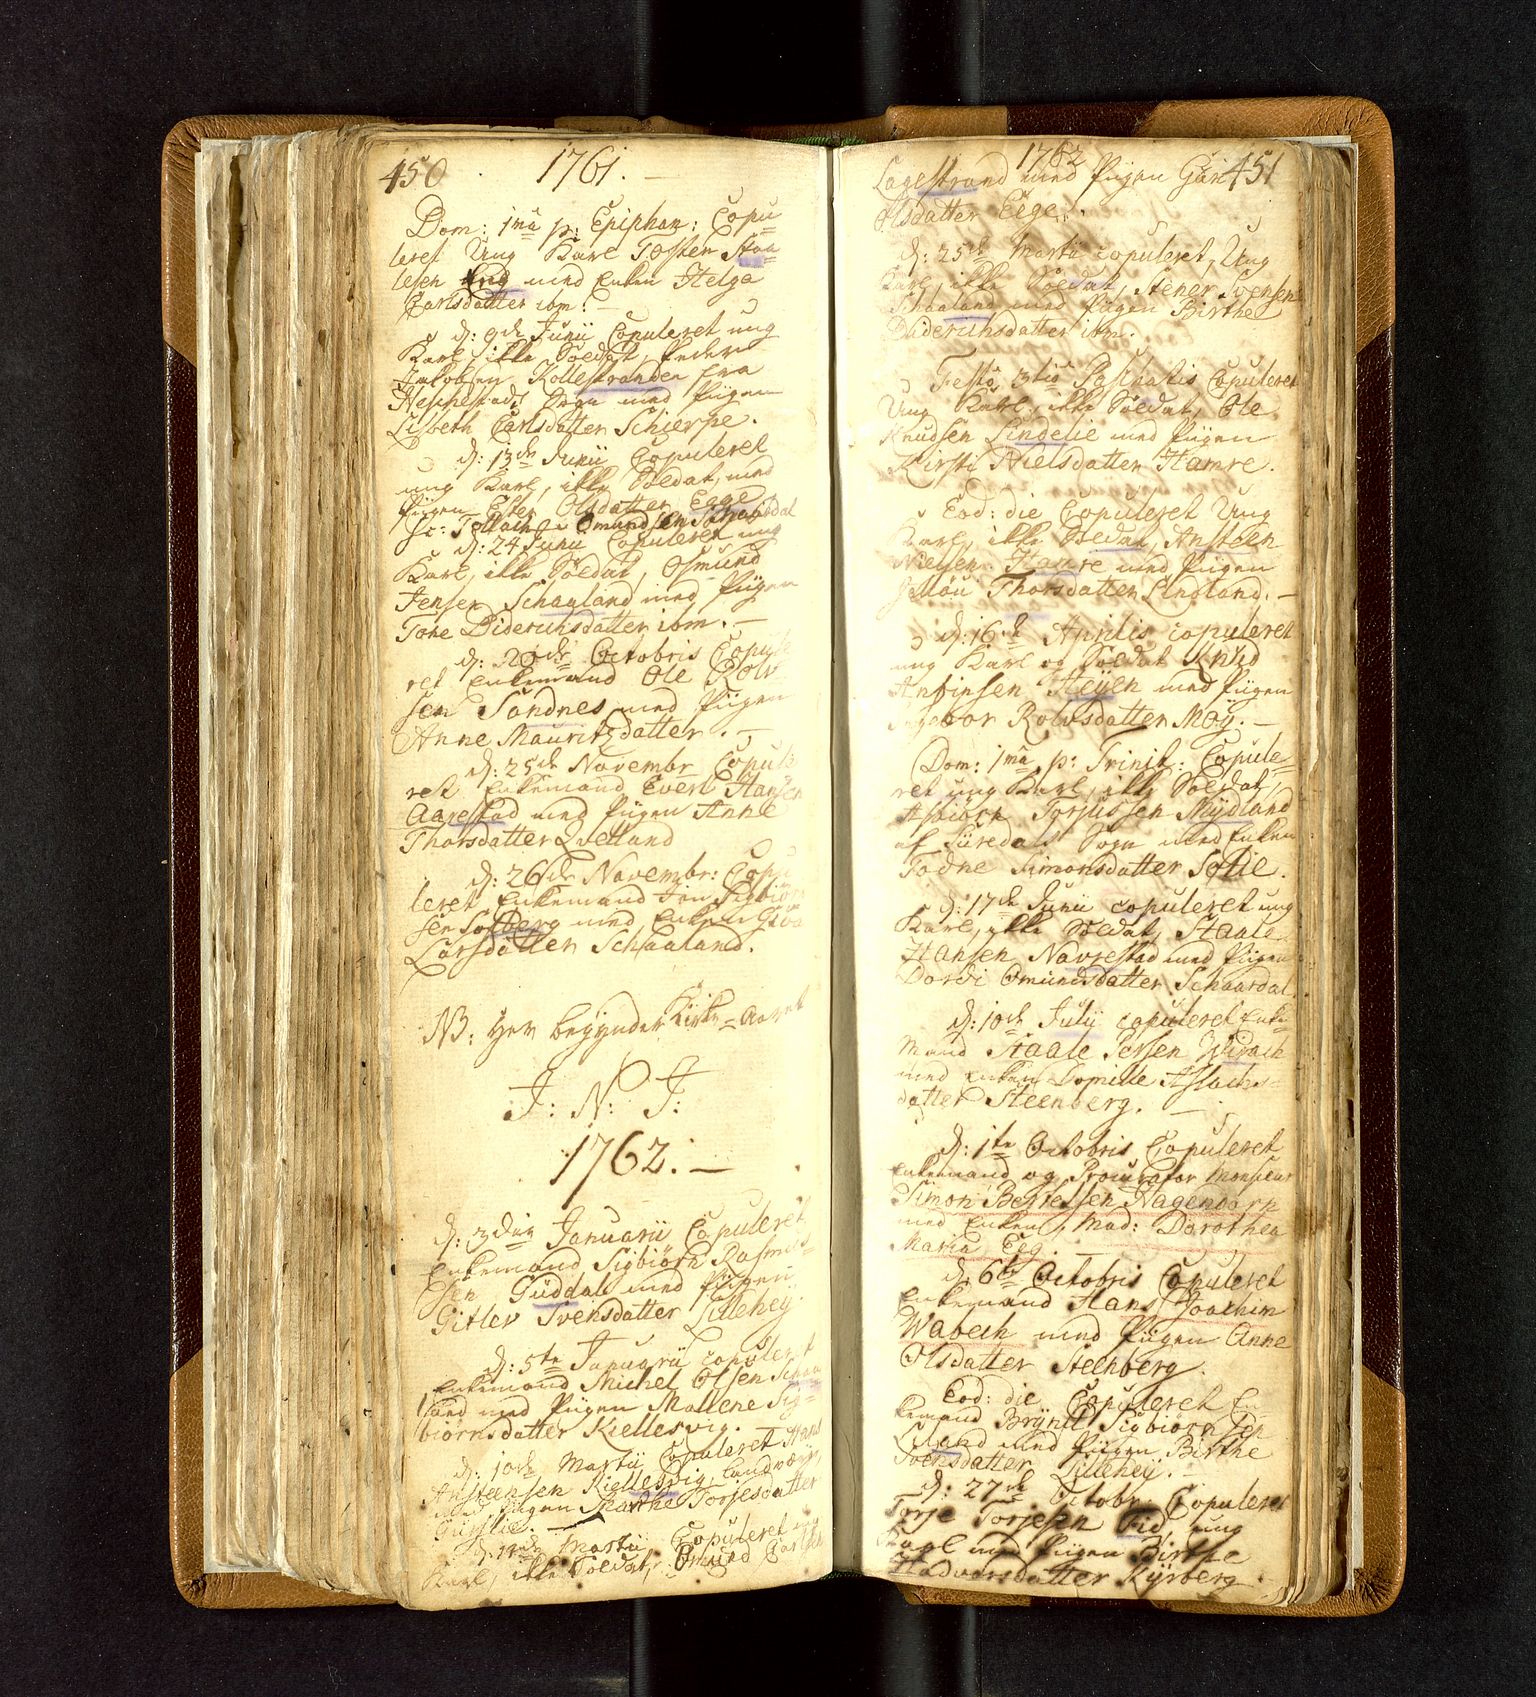 450 1761. —
Dom: 1ma p: Epiphan: Copu
leret Ung Karl Tosten Staa
lesen med Enken Helga
Carlsdatter ibm: —
d: 9de Junii Copuleret ung
Karl, ikke Soldat, Peder
Jacobsen Kollestranden fra
Heschestads Sogn med Pigen
Lisbeth Carlsdatter Schierpe.
d: 13de Junii Copuleret
ung Karl, ikke Soldat, med
Pigen Ester Olsdatter Eege.
Omundsen
d: 24 Junii Copuleret ung
Karl, ikke Soldat, Osmund
Jensen Schaaland med Pigen
Tore Diderichsdatter ibm. —
d: 20de Octobris Copule
ret Enkemand Ole Rolv
sen Sandnes med Pigen
Anne Mauritzdatter. —
d: 25de Novembr Copule
ret Enkemand Evert Hansen
Aarestad med Pigen Anne
Thorsdatter Qvelland
d: 26de Novembr: Copu
leret Enkemand Jon Sigbiørn
sen Solberg med Enken
Larsdatter Schaaland.
NB: Her begynder Kirke-Aaret
J: N: J:
1762. —
d: 3die Januarii Copuleret
Enkemand Sigbiørn Rasmus-
sen Guddal med Pigen
Gitlev Svensdatter Lillehey.
d: 5te Januarii copuleret
Enkemand Michel Olsen Schaa
land med Pigen Mallene Sig-
biørnsdatter Kiellesvig.
d: 10de Martii Copuleret Hans
Ansteensen Kiellesvig, Landværn,
med Pigen Marthe Torjesdatter
d: Martii, Copuleret ung
Karl, ikke Soldat, Omund Carlsen
1762 451
Lagestrand med Pigen
Olsdatter Eege.
d: 25de Martii copuleret, Ung
Karl, ikke Soldat, Stener Svensen
Schaaland med Pigen Birthe
Diderichsdatter ibm.
Festo 3tio Paschatis Copuleret
Ung Karl, ikke Soldat, Ole
Knudsen Lindelie med Pigen
Kirsti Nielsdatter Hamre.
Eod: die Copuleret Ung
Karl, ikke Soldat, Ansteen
Nielsen Hamre med Pigen
Thorsdatter Lindland. —
d: 16de Aprilis copuleret
ung Karl og Soldat Knud
Anfinsen Heyen med Pigen
Ingebor Rolvsdatter Moy. —
Dom: 1ma p: Trinit: Copule-
ret ung Karl, ikke Soldat,
Asbiørn Torjussen Mydland
af Siiredals Sogn med Enken
Todne Simonsdatter Solie.
d: 17de Junii copuleret ung
Karl, ikke Soldat, Staale
Hansen Navrestad med Pigen
Dordi Omundsdatter Schaardal.
d: 10de Julij copuleret Enke-
mand Staale Persen Wirach
med Enken Domille Aslachs-
datter Steenberg. —
d: 1te Octobris Copuleret
Enkemand og Procurator Monsieur
Simon Berresen Hagendorp
med Enken, Mad: Dorothea
Maria Eeg. —
d: 6te Octobris Copuleret
Enkemand Hans Joachim
Wabech med Pigen Anne
Olsdatter Steenberg.
Eod: die Copuleret En-
kemand Brynild Sigbiørnsen
med Pigen Birthe
Svensdatter Lillehey. —
d: 27de Octobr. Copuleret
Torje Torjesen Lid, ung
Karl med Pigen Birthe
Hadvorsdatter Kyrberg.